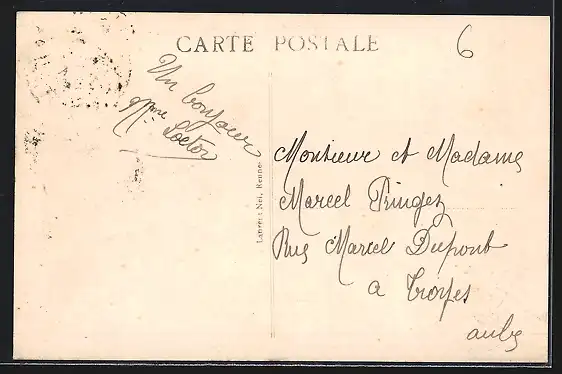 CARTE POSTALE
6
Un bonjour
Mme Loctor
Monsieur et Madame
Marcel Pringez
Rue Marcel Dupont
a Troyes
aube
Rennes